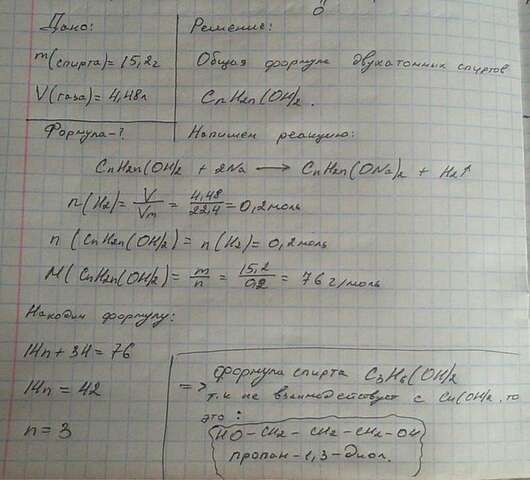 O
Дано:
m(спирта)=15,2г
V(газа)=4,48л
Формула-?
Решение:
Общая формула двухатомных спиртов
CnH2n(OH)2.
Напишем реакцию:
CnH2n(OH)2 + 2Na → CnH2n(ONa)2 + H2↑
n(H2)= V/Vm = 4,48/22,4 = 0,2моль
n (CnH2n(OH)2) = n(H2)= 0,2моль
M(CnH2n(OH)2)= m/n = 15,2/0,2 = 76 г/моль
Находим формулу:
14n+34=76
14n = 42
n = 3
=> формула спирта C3H6(OH)2
т.к не взаимодействует с Cu(OH)2, то
это :
HO-CH2-CH2-CH2-OH
пропан-1,3-диол.